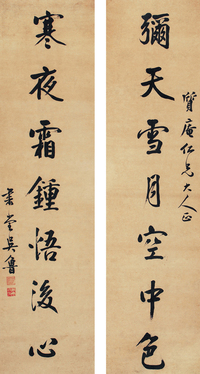 彌天雪月空中色
質庵仁兄大人正
寒夜霜鍾悟後心
肅堂吳魯